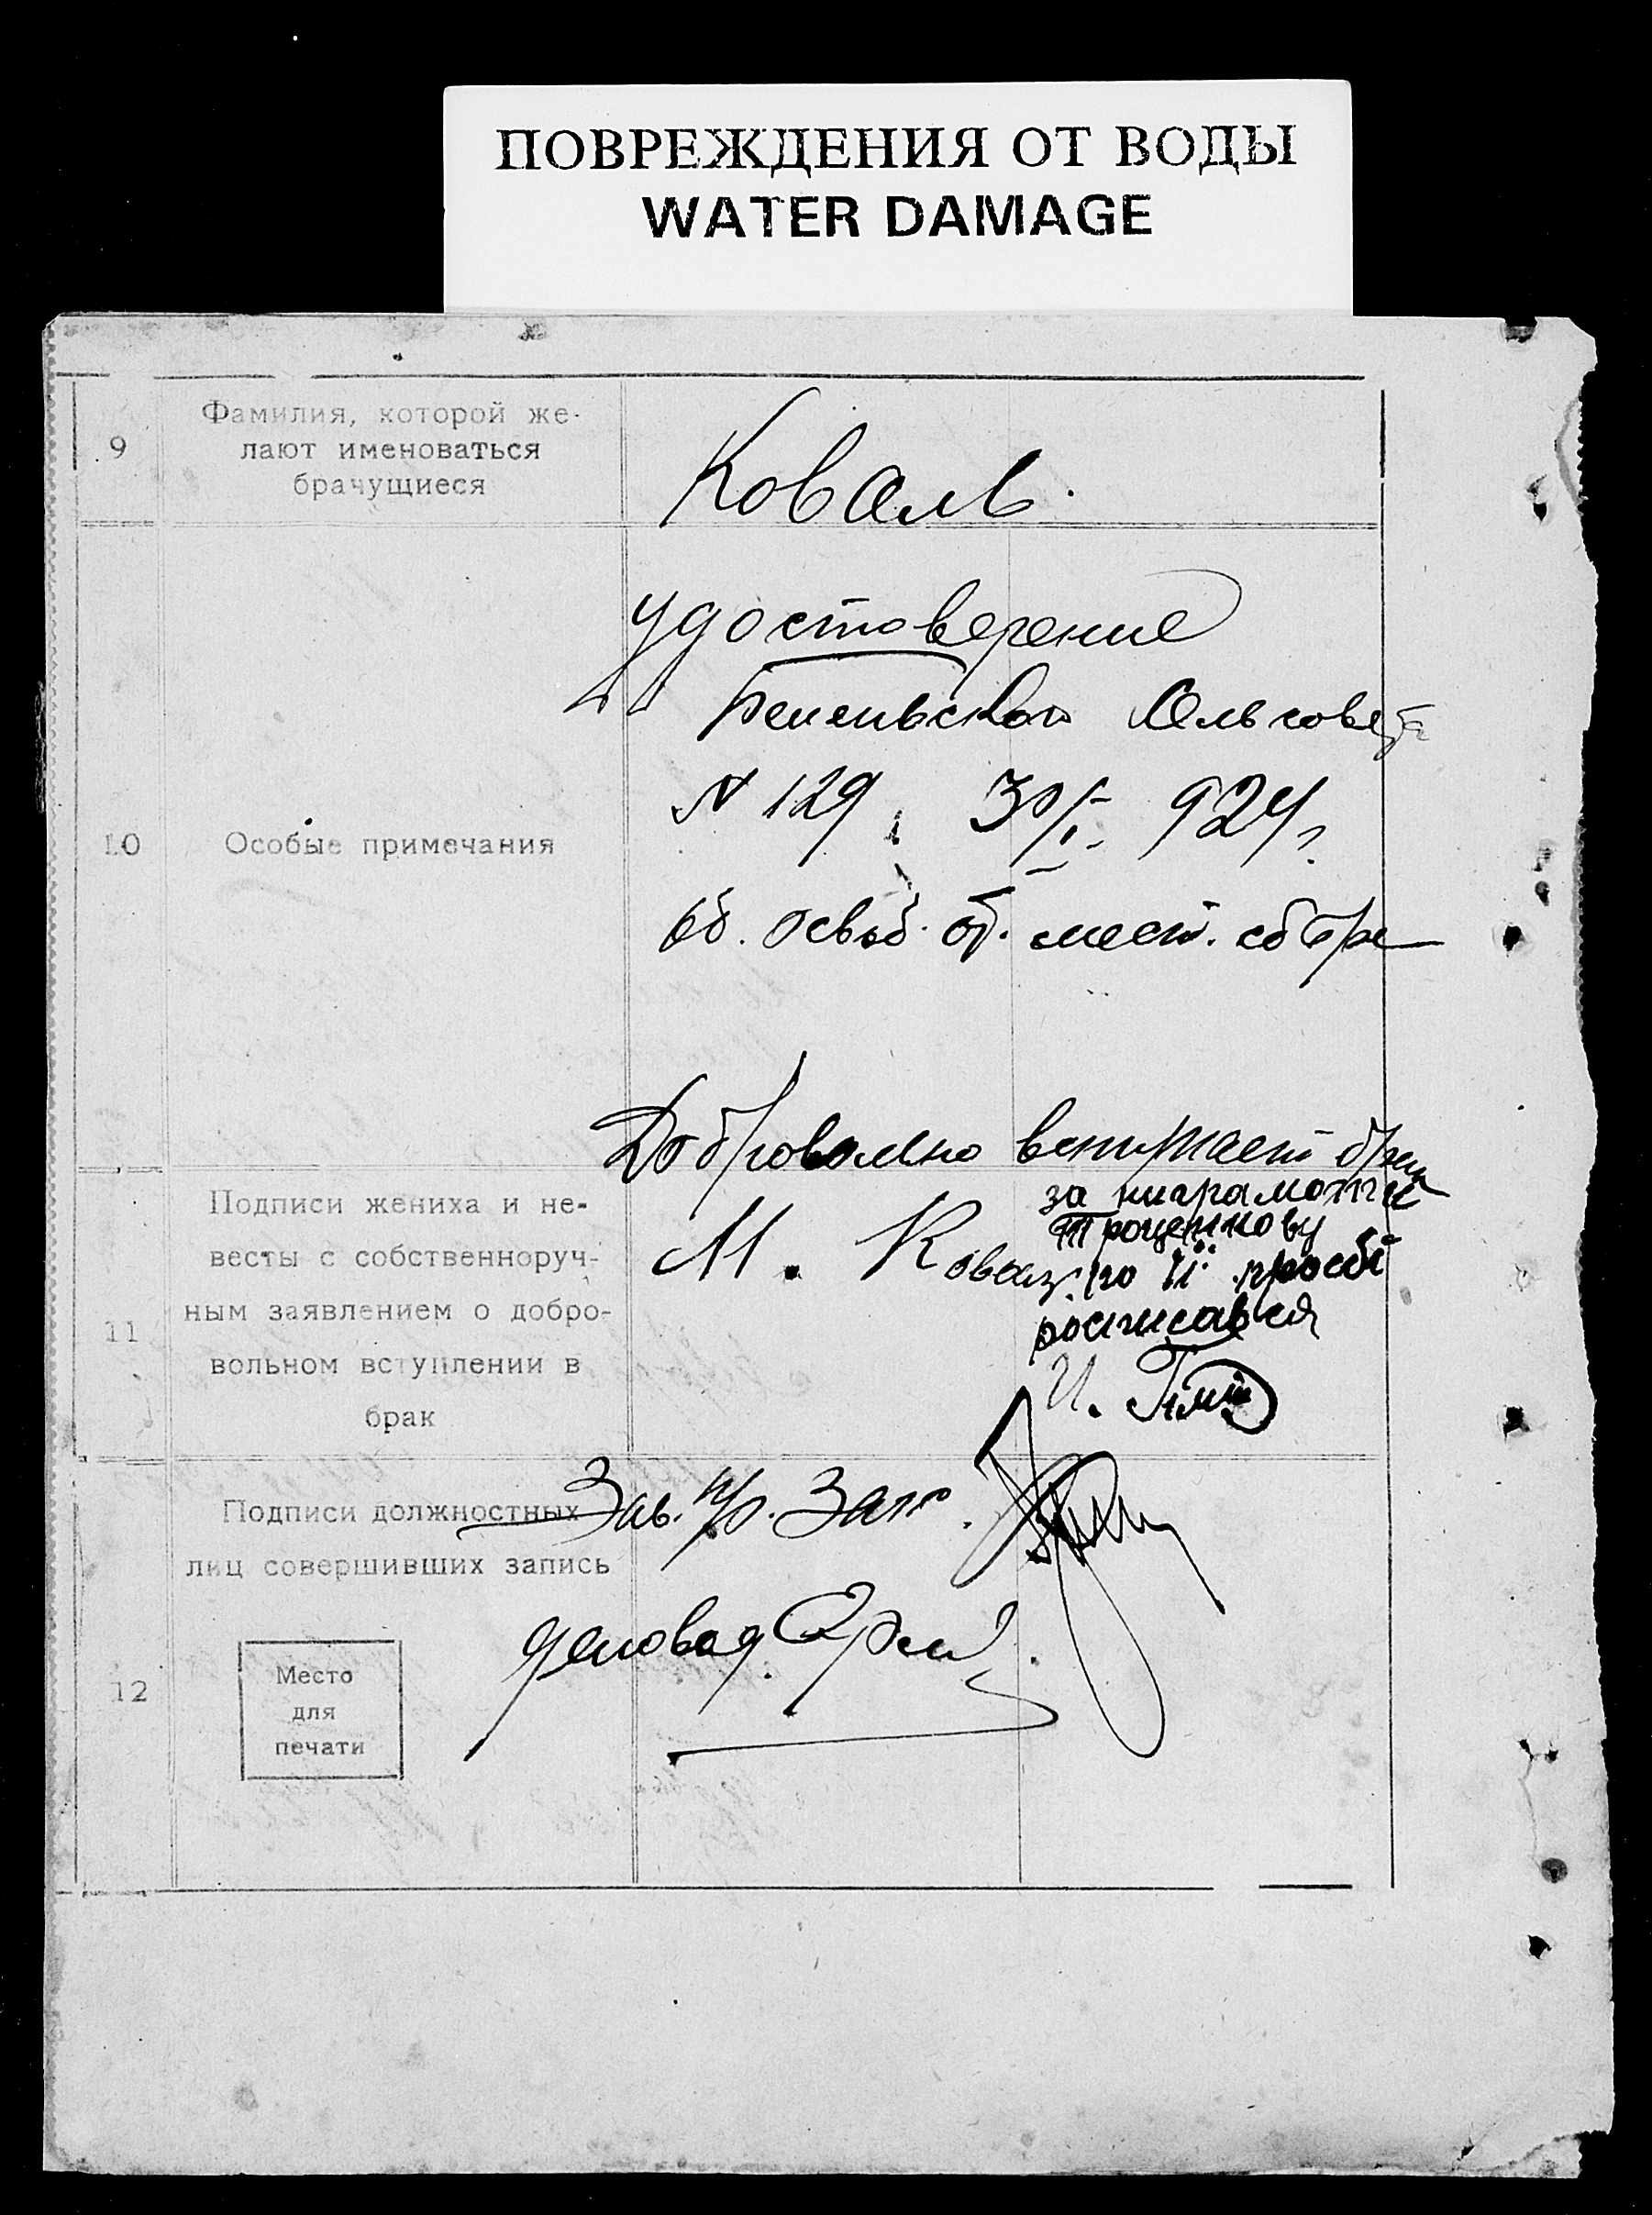 ПОВРЕЖДЕНИЯ ОТ ВОДЫ
WATER DAMAGE
9
Фамилия, которой же-
лают именоваться
брачущиеся
Коваль.
10
Особые примечания
Удостоверение
Сельсовета
N 129, 30/I 924 г.
об. освоб. от. мест. сбора
11
Подписи жениха и не-
весты с собственноруч-
ным заявлением о добро-
вольном вступлении в
брак
Добровольно вступает брак
М. Коваль
за ниграмотну
Троценкову
по її просбі
росписався
И.
12
Подписи должностных
лиц совершивших запись
Зав. п/о. Загс.
деловод.
Место
для
печати